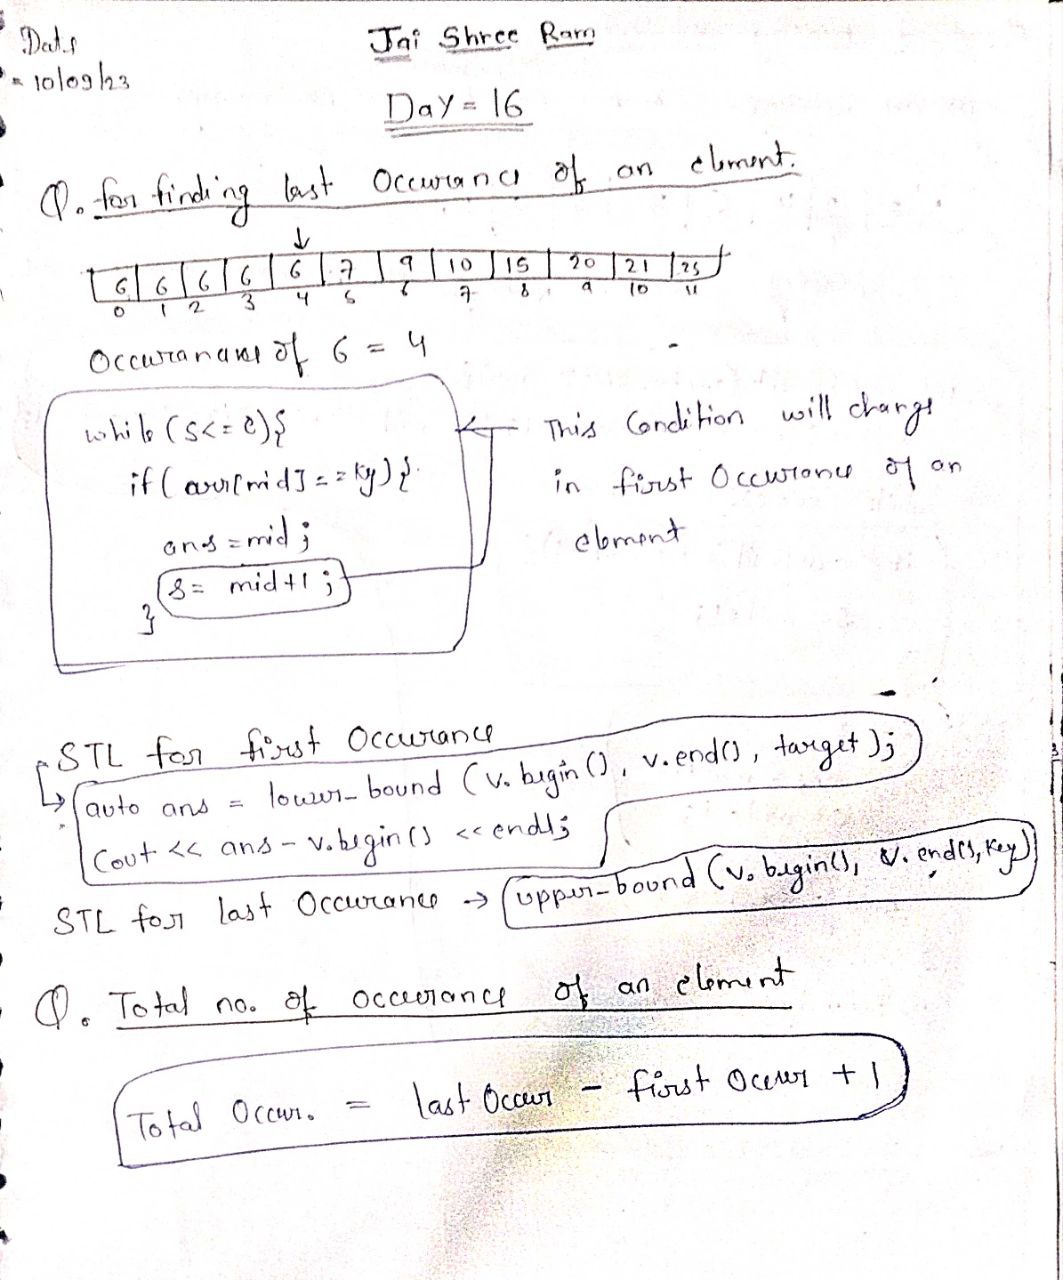 Date
= 10/09/23
Jai Shree Ram
Day = 16
Q. for finding last Occurance of an element.
↓
6 6 6 6 6 7 9 10 15 20 21 25
0 1 2 3 4 5 6 7 8 9 10 11
Occurance of 6 = 4
while (s<=e){
if (arr[mid] == key) {
ans = mid ;
s = mid+1 ;
}
This Condition will change
in first Occurance of an
element
STL for first Occurance
auto ans = lower_bound (v.begin(), v.end(), target);
Cout << ans - v.begin() << endl;
STL for last Occurance → upper_bound (v.begin(), v.end(), key)
Q. Total no. of occurance of an element
Total Occur. = last Occur - first Occur + 1